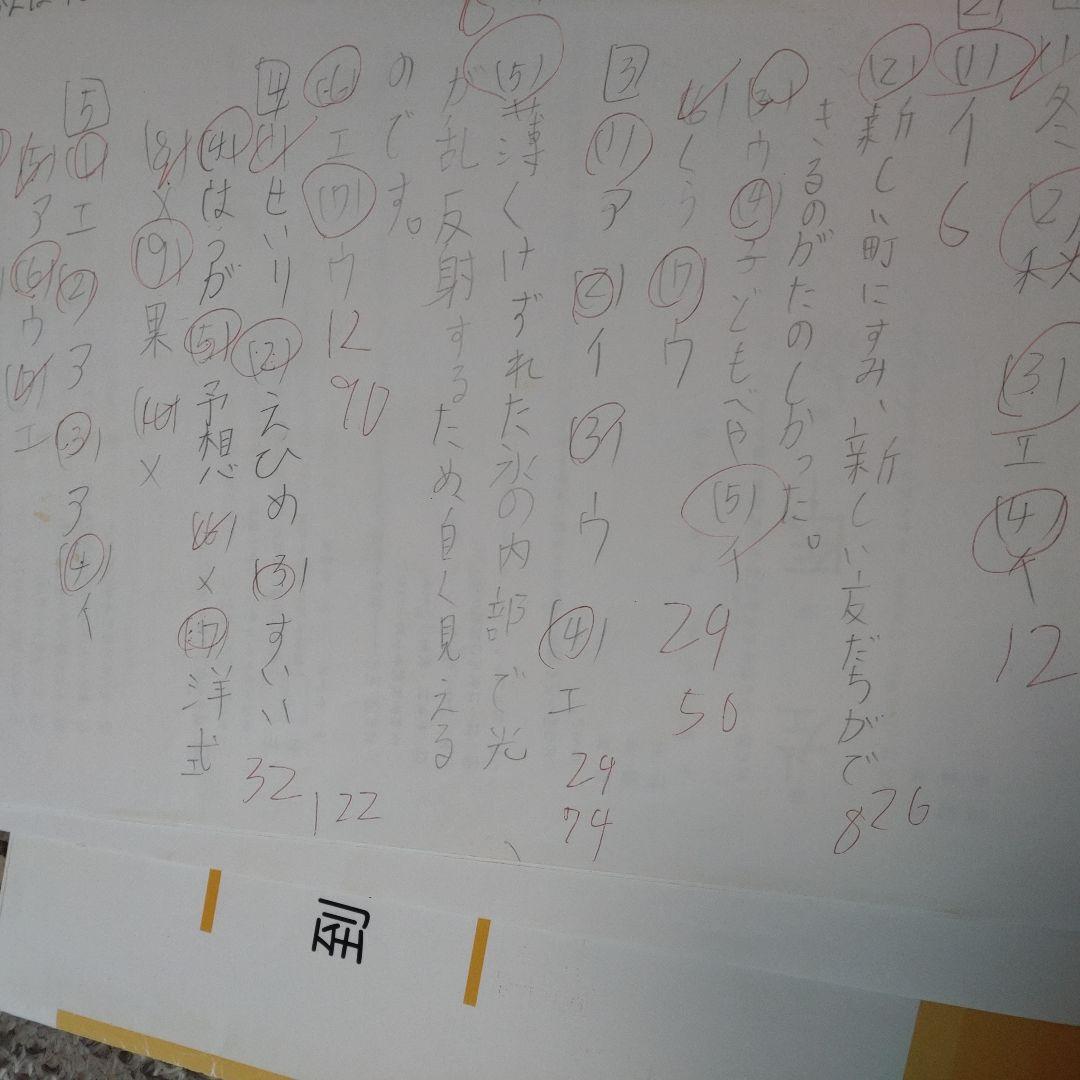 (1) 冬 (2) 秋 (3) エ (4) イ 12
2
(1) イ 6
(2) 新しい町にすみ、新しい友だちがで
きるのがたのしかった。 8 26
(3) ウ (4) 子どもべや (5) イ
(6) くう (7) ウ 29 50
3
(1) ア (2) イ (3) ウ (4) エ 24 74
(5) 薄くけずれた氷の内部で光
が乱反射するため白く見える
のです。
(6) エ (7) ウ 12 90
4
(1) せいり (2) えひめ (3) すいい 32 122
(4) は、が (5) 予想 (6) × (7) 洋式
(8) × (9) 果 (10) ×
5
(1) エ (2) ア (3) ア (4) イ
(5) ア (6) ウ エ
到